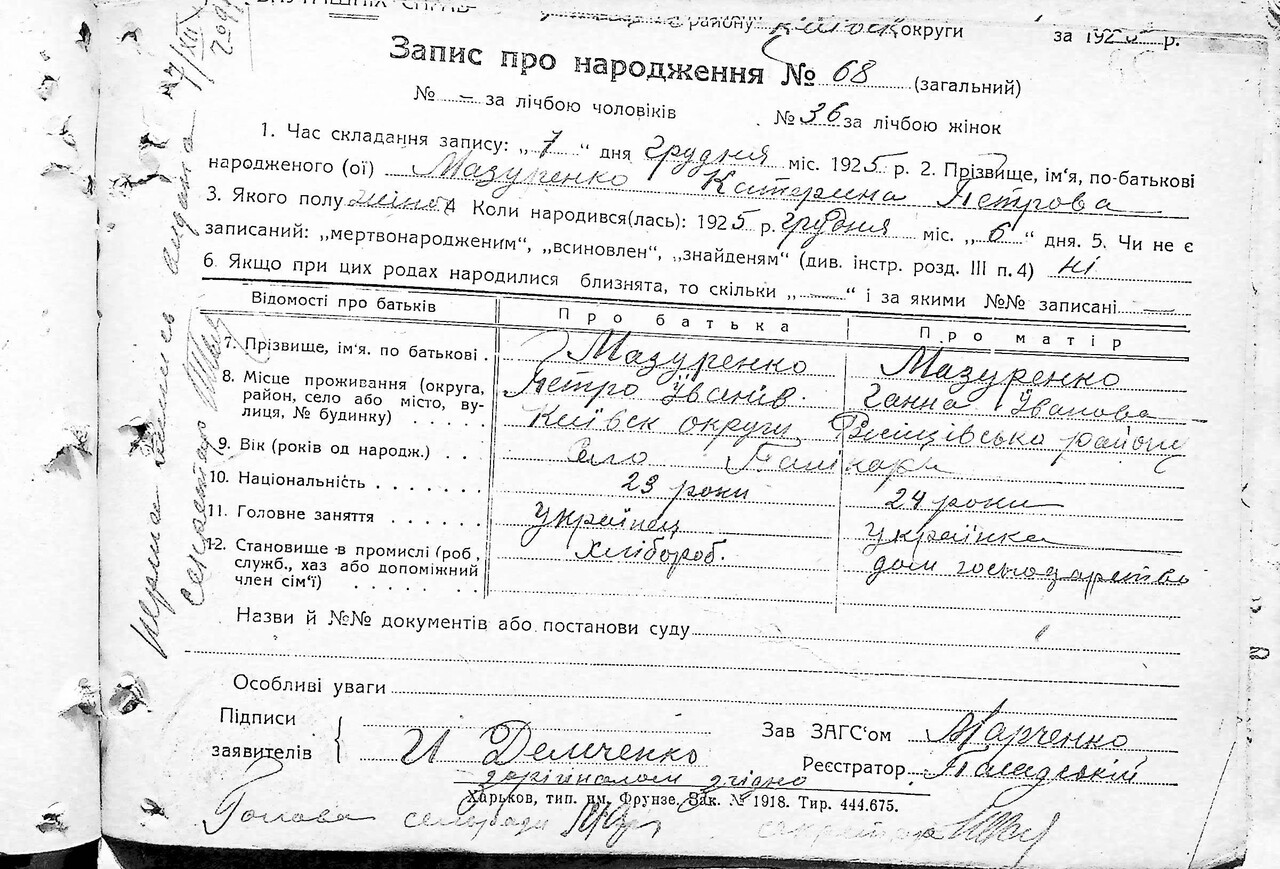 району Київськ округи за 1925 р.
Запис про народження № 68 (загальний)
№ — за лічбою чоловіків № 36 за лічбою жінок
1. Час складання запису: „ 7 “ дня грудня міс. 1925 р. 2. Прізвище, ім'я, по-батькові
народженого (ої) Мазуренко Катерина Петрова
3. Якого полу жіноч 4 Коли народився(лась): 1925 р. грудня міс. „ 6 “ дня. 5. Чи не є
записаний: „мертвонародженим“, „всиновлен“, „знайденям“ (див. інстр. розд. III п. 4) ні
6. Якщо при цих родах народилися близнята, то скільки „ — “ і за якими №№ записані —
Відомості про батьків Про батька Про матір
7. Прізвище, ім'я. по батькові . Мазуренко Мазуренко
8. Місце проживання (округа, Петро Іванів. Ганна Іванова
район, село або місто, ву-
лиця, № будинку) Київськ округи Ржищівська району
9. Вік (років од народж.) . . Село
10. Національність 23 роки 24 роки
11. Головне заняття українец українка
12. Становище в промислі (роб, хлібороб. дом господарство
служб., хаз або допоміжний
член сім'ї)
Назви й №№ документів або постанови суду
Особливі уваги
Підписи Зав ЗАГС'ом Марченко
заявителів И Демченко Реєстратор
з оригіналом згідно
Харьков, тип. им. Фрунзе. Зак. № 1918. Тир. 444.675.
Голова сельради секретарь